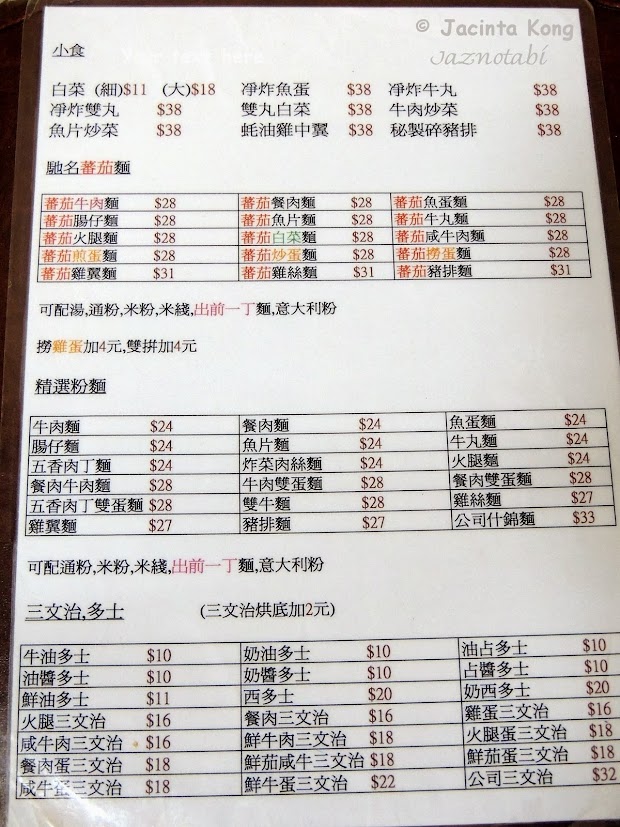 © Jacinta Kong
Jaznotabi
Your text here
小食
白菜 (細)$11 (大)$18 凈炸魚蛋 $38 凈炸牛丸 $38
凈炸雙丸 $38 雙丸白菜 $38 牛肉炒菜 $38
魚片炒菜 $38 蚝油雞中翼 $38 秘製碎豬排 $38
馳名蕃茄麵
蕃茄牛肉麵 $28 蕃茄餐肉麵 $28 蕃茄魚蛋麵 $28
蕃茄腸仔麵 $28 蕃茄魚片麵 $28 蕃茄牛丸麵 $28
蕃茄火腿麵 $28 蕃茄白菜麵 $28 蕃茄咸牛肉麵 $28
蕃茄煎蛋麵 $28 蕃茄炒蛋麵 $28 蕃茄撈蛋麵 $28
蕃茄雞翼麵 $31 蕃茄雞絲麵 $31 蕃茄豬排麵 $31
可配湯,通粉,米粉,米綫,出前一丁麵,意大利粉
撈雞蛋加4元,雙拼加4元
精選粉麵
牛肉麵 $24 餐肉麵 $24 魚蛋麵 $24
腸仔麵 $24 魚片麵 $24 牛丸麵 $24
五香肉丁麵 $24 炸菜肉絲麵 $24 火腿麵 $24
餐肉牛肉麵 $28 牛肉雙蛋麵 $28 餐肉雙蛋麵 $28
五香肉丁雙蛋麵 $28 雙牛麵 $28 雞絲麵 $27
雞翼麵 $27 豬排麵 $27 公司什錦麵 $33
可配通粉,米粉,米綫,出前一丁麵,意大利粉
三文治,多士 (三文治烘底加2元)
牛油多士 $10 奶油多士 $10 油占多士 $10
油醬多士 $10 奶醬多士 $10 占醬多士 $10
鮮油多士 $11 西多士 $20 奶西多士 $20
火腿三文治 $16 餐肉三文治 $16 雞蛋三文治 $16
咸牛肉三文治 $16 鮮牛肉三文治 $18 火腿蛋三文治 $18
餐肉蛋三文治 $18 鮮茄咸牛三文治 $18 鮮茄蛋三文治 $18
咸牛蛋三文治 $18 鮮牛蛋三文治 $22 公司三文治 $32